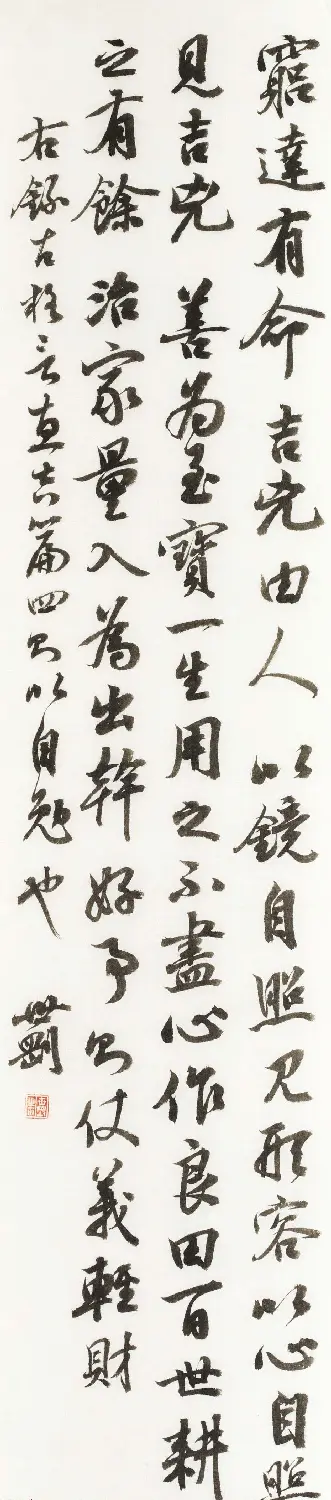 窮達有命 吉兇由人 以鏡自照見形容以心自照
見吉兇 善為至寶一生用之不盡心作良田百世耕
之有餘 治家量入為出幹好事則仗義輕財
右錄古格言直言篇四則以自勉也
世剛